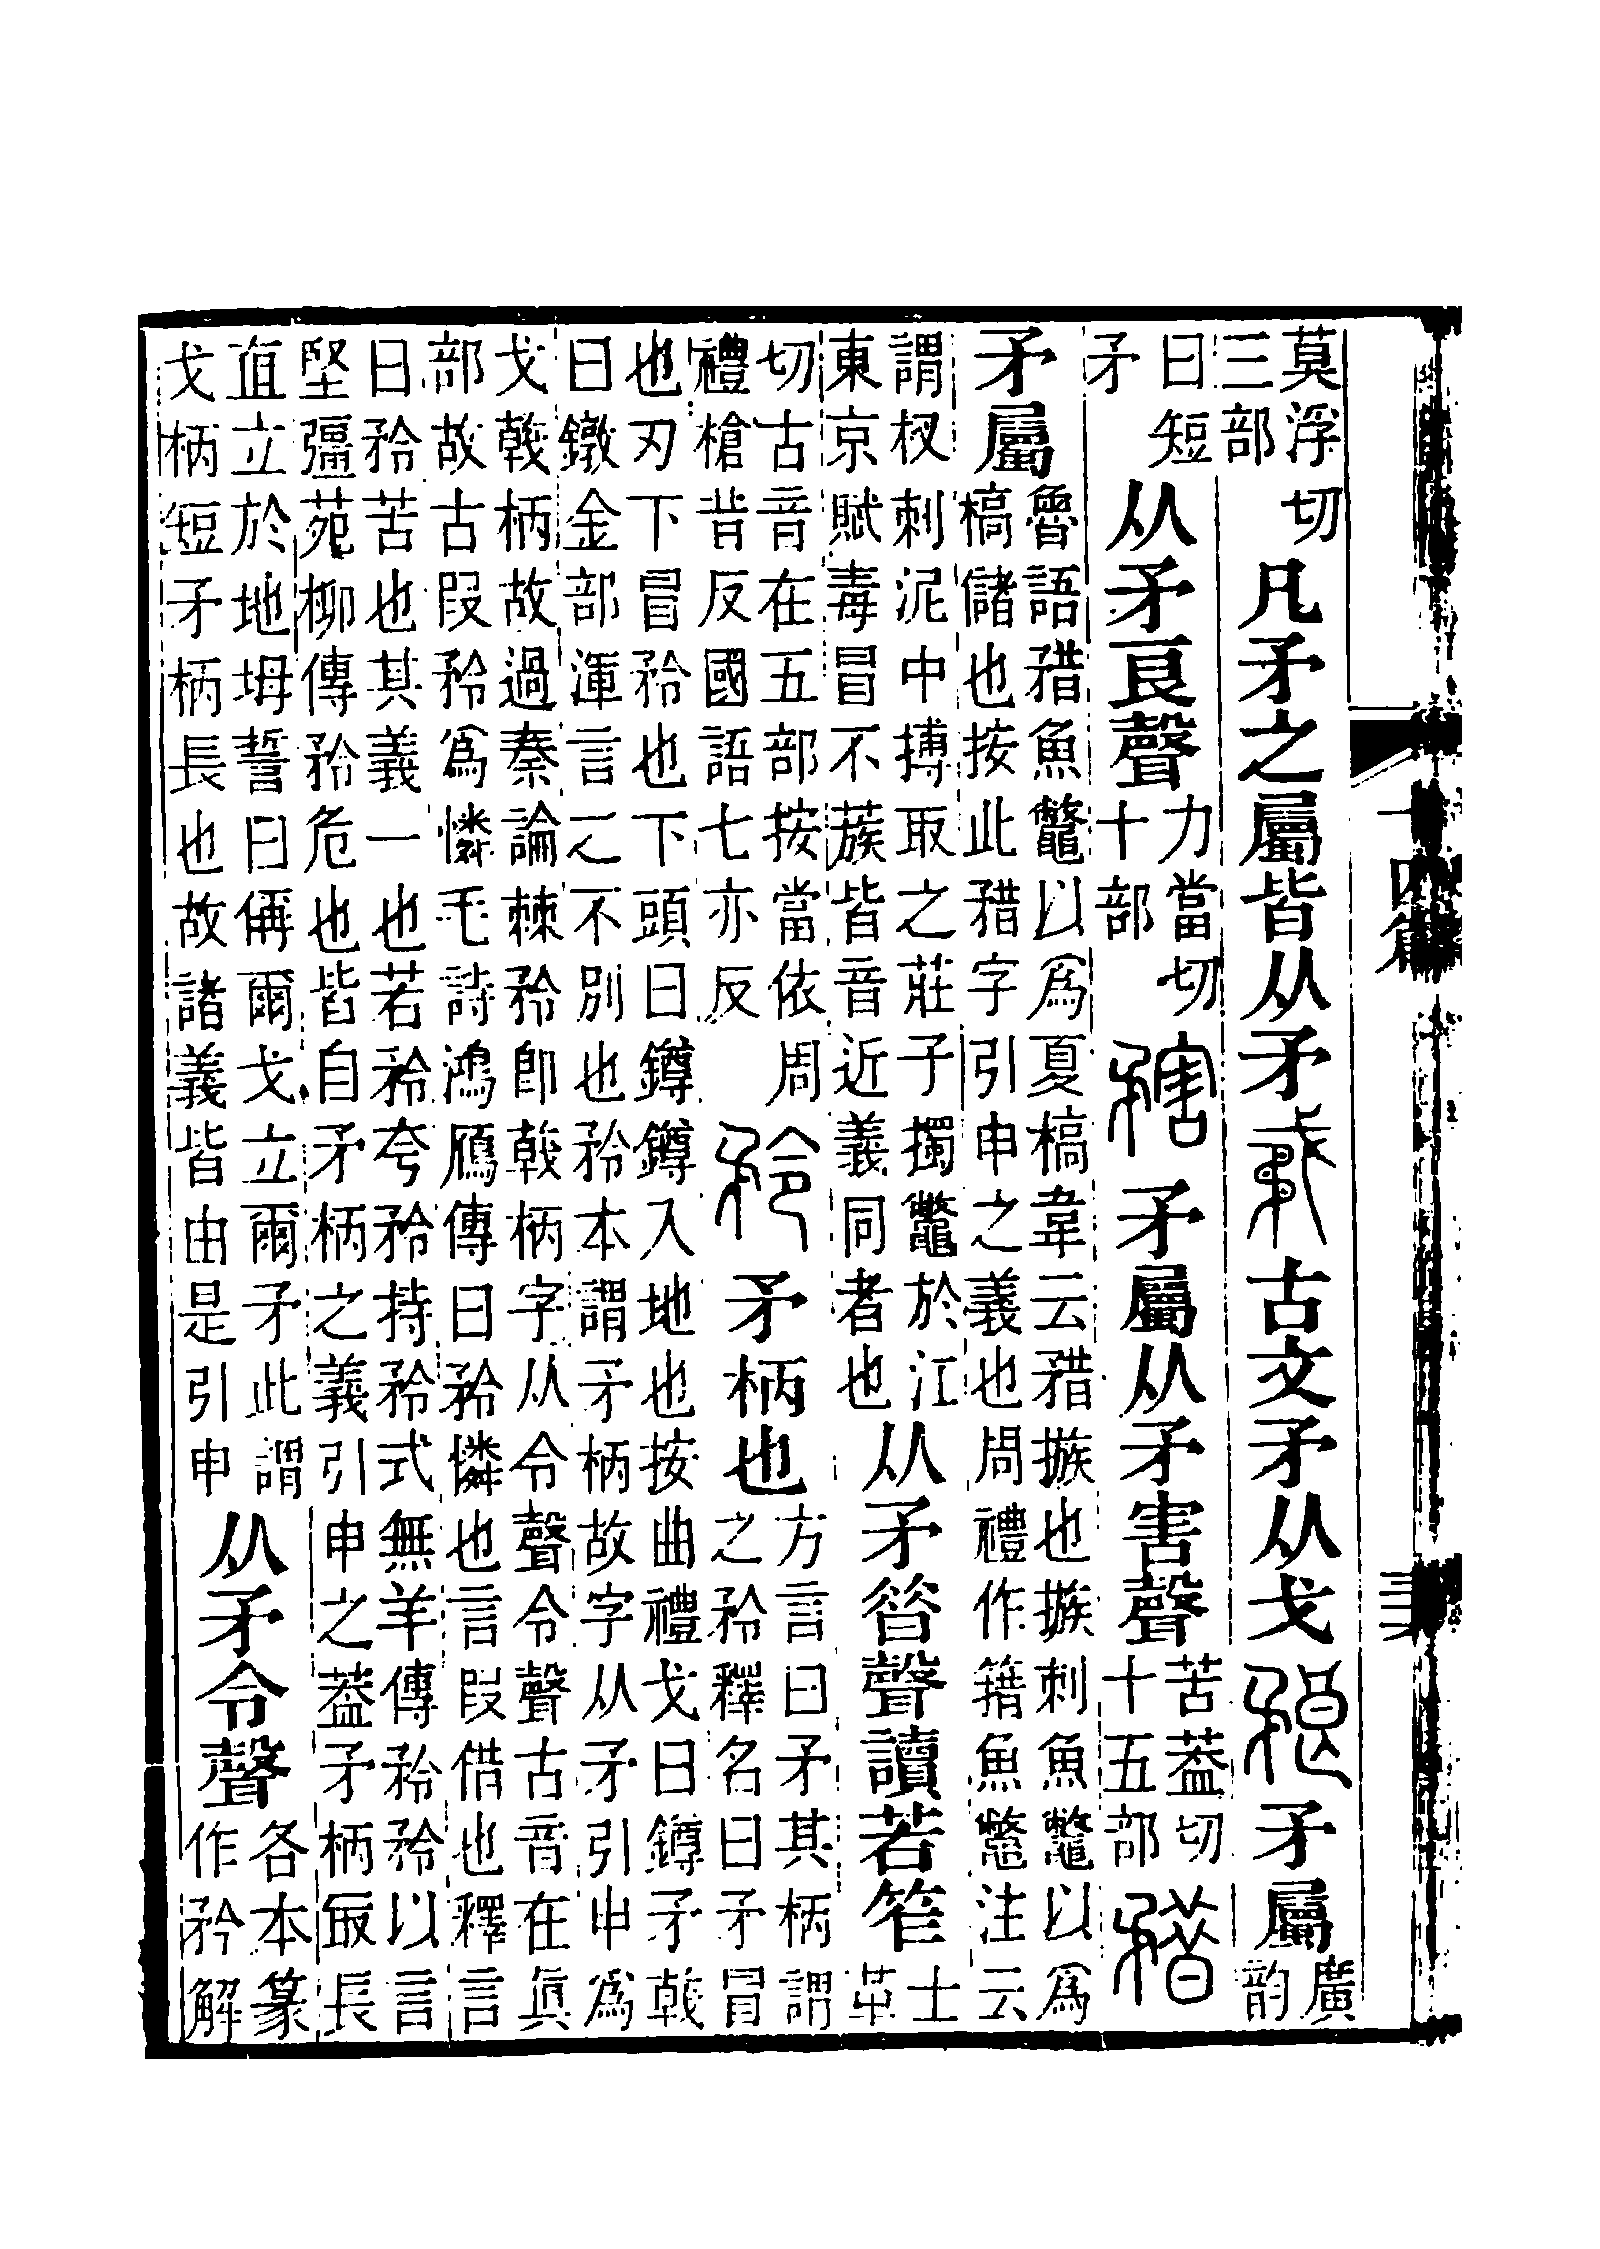 莫浮切三部凡矛之屬皆从矛𢦧古文矛从戈䂻矛屬廣韵
曰短矛从矛良聲力當切十部䂯矛屬从矛害聲苦葢切十五部矠
矛屬魯語矠魚鼈以爲夏槁韋云矠也刺魚鼈以爲槁儲也按此矠字引申之義也周禮作籍魚鼈注云
謂杈刺泥中搏取之莊子擉鼈於江東京賦毒冒不蔟皆音近義同者也从矛昔聲讀若笮士革
切古音在五部按當依周禮槍昔反國語七亦反矝矛柄也方言曰矛其柄謂之矝釋名曰矛冒
也刃下冒矝也下頭曰鐏鐏入地也按曲禮戈曰鐏矛戟曰鐓金部渾言之不別也矝本謂矛柄故字从矛引申爲
戈戟柄故過秦論棘矝卽戟柄字从令聲令聲古音在眞部故古叚矝爲憐毛詩鴻鴈傳曰矝憐也言叚借也釋言
曰矝苦也其義一也若矝夸矝持矝式無羊傳矝矝以言堅彊苑柳傳矝危也皆自矛柄之義引申之葢矛柄最長
直立於地坶誓曰偁爾戈立爾矛此謂戈柄短矛柄長也故諸義皆由是引申从矛令聲各本篆作矜解